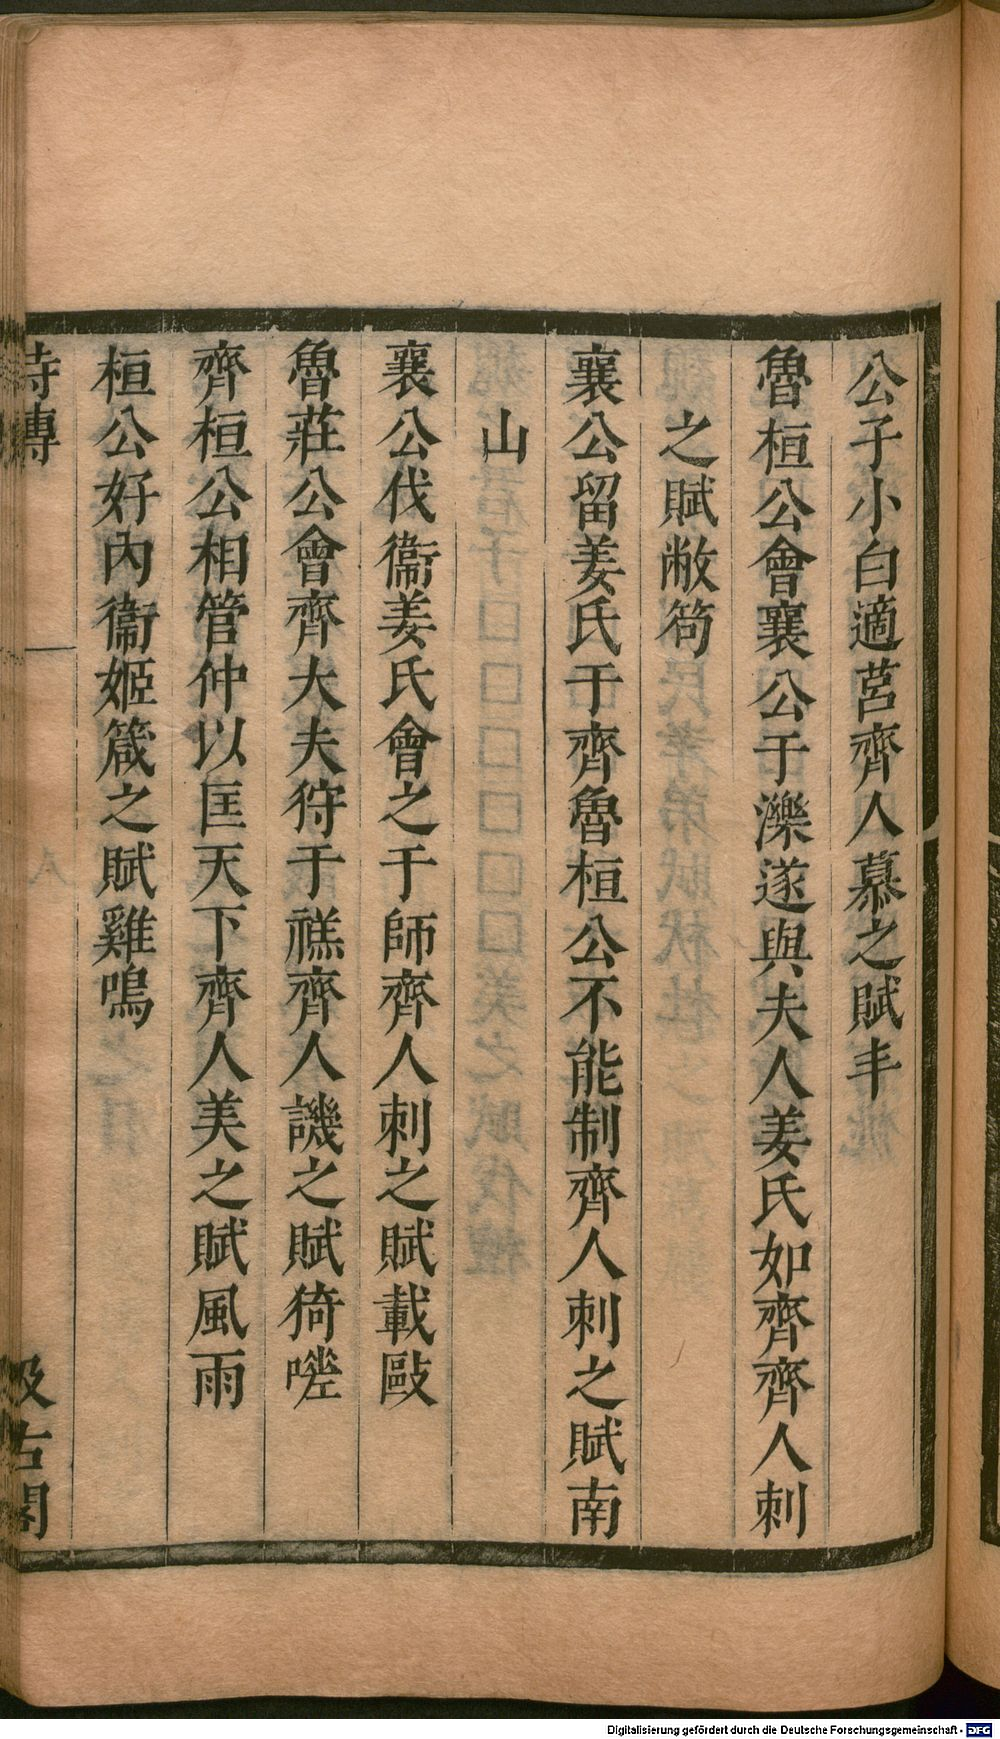 公子小白適莒齊人慕之賦丰
魯桓公會襄公于濼遂與夫人姜氏如齊齊人刺
之賦敝笱
襄公留姜氏于齊魯桓公不能制齊人刺之賦南
山
襄公伐衞姜氏會之于師齊人刺之賦載敺
魯莊公會齊大夫狩于禚齊人譏之賦猗嗟
齊桓公相管仲以匡天下齊人美之賦風雨
桓公好內衞姬箴之賦雞鳴
詩傳 八 汲古閣
Digitalisierung gefördert durch die Deutsche Forschungsgemeinschaft - DFG